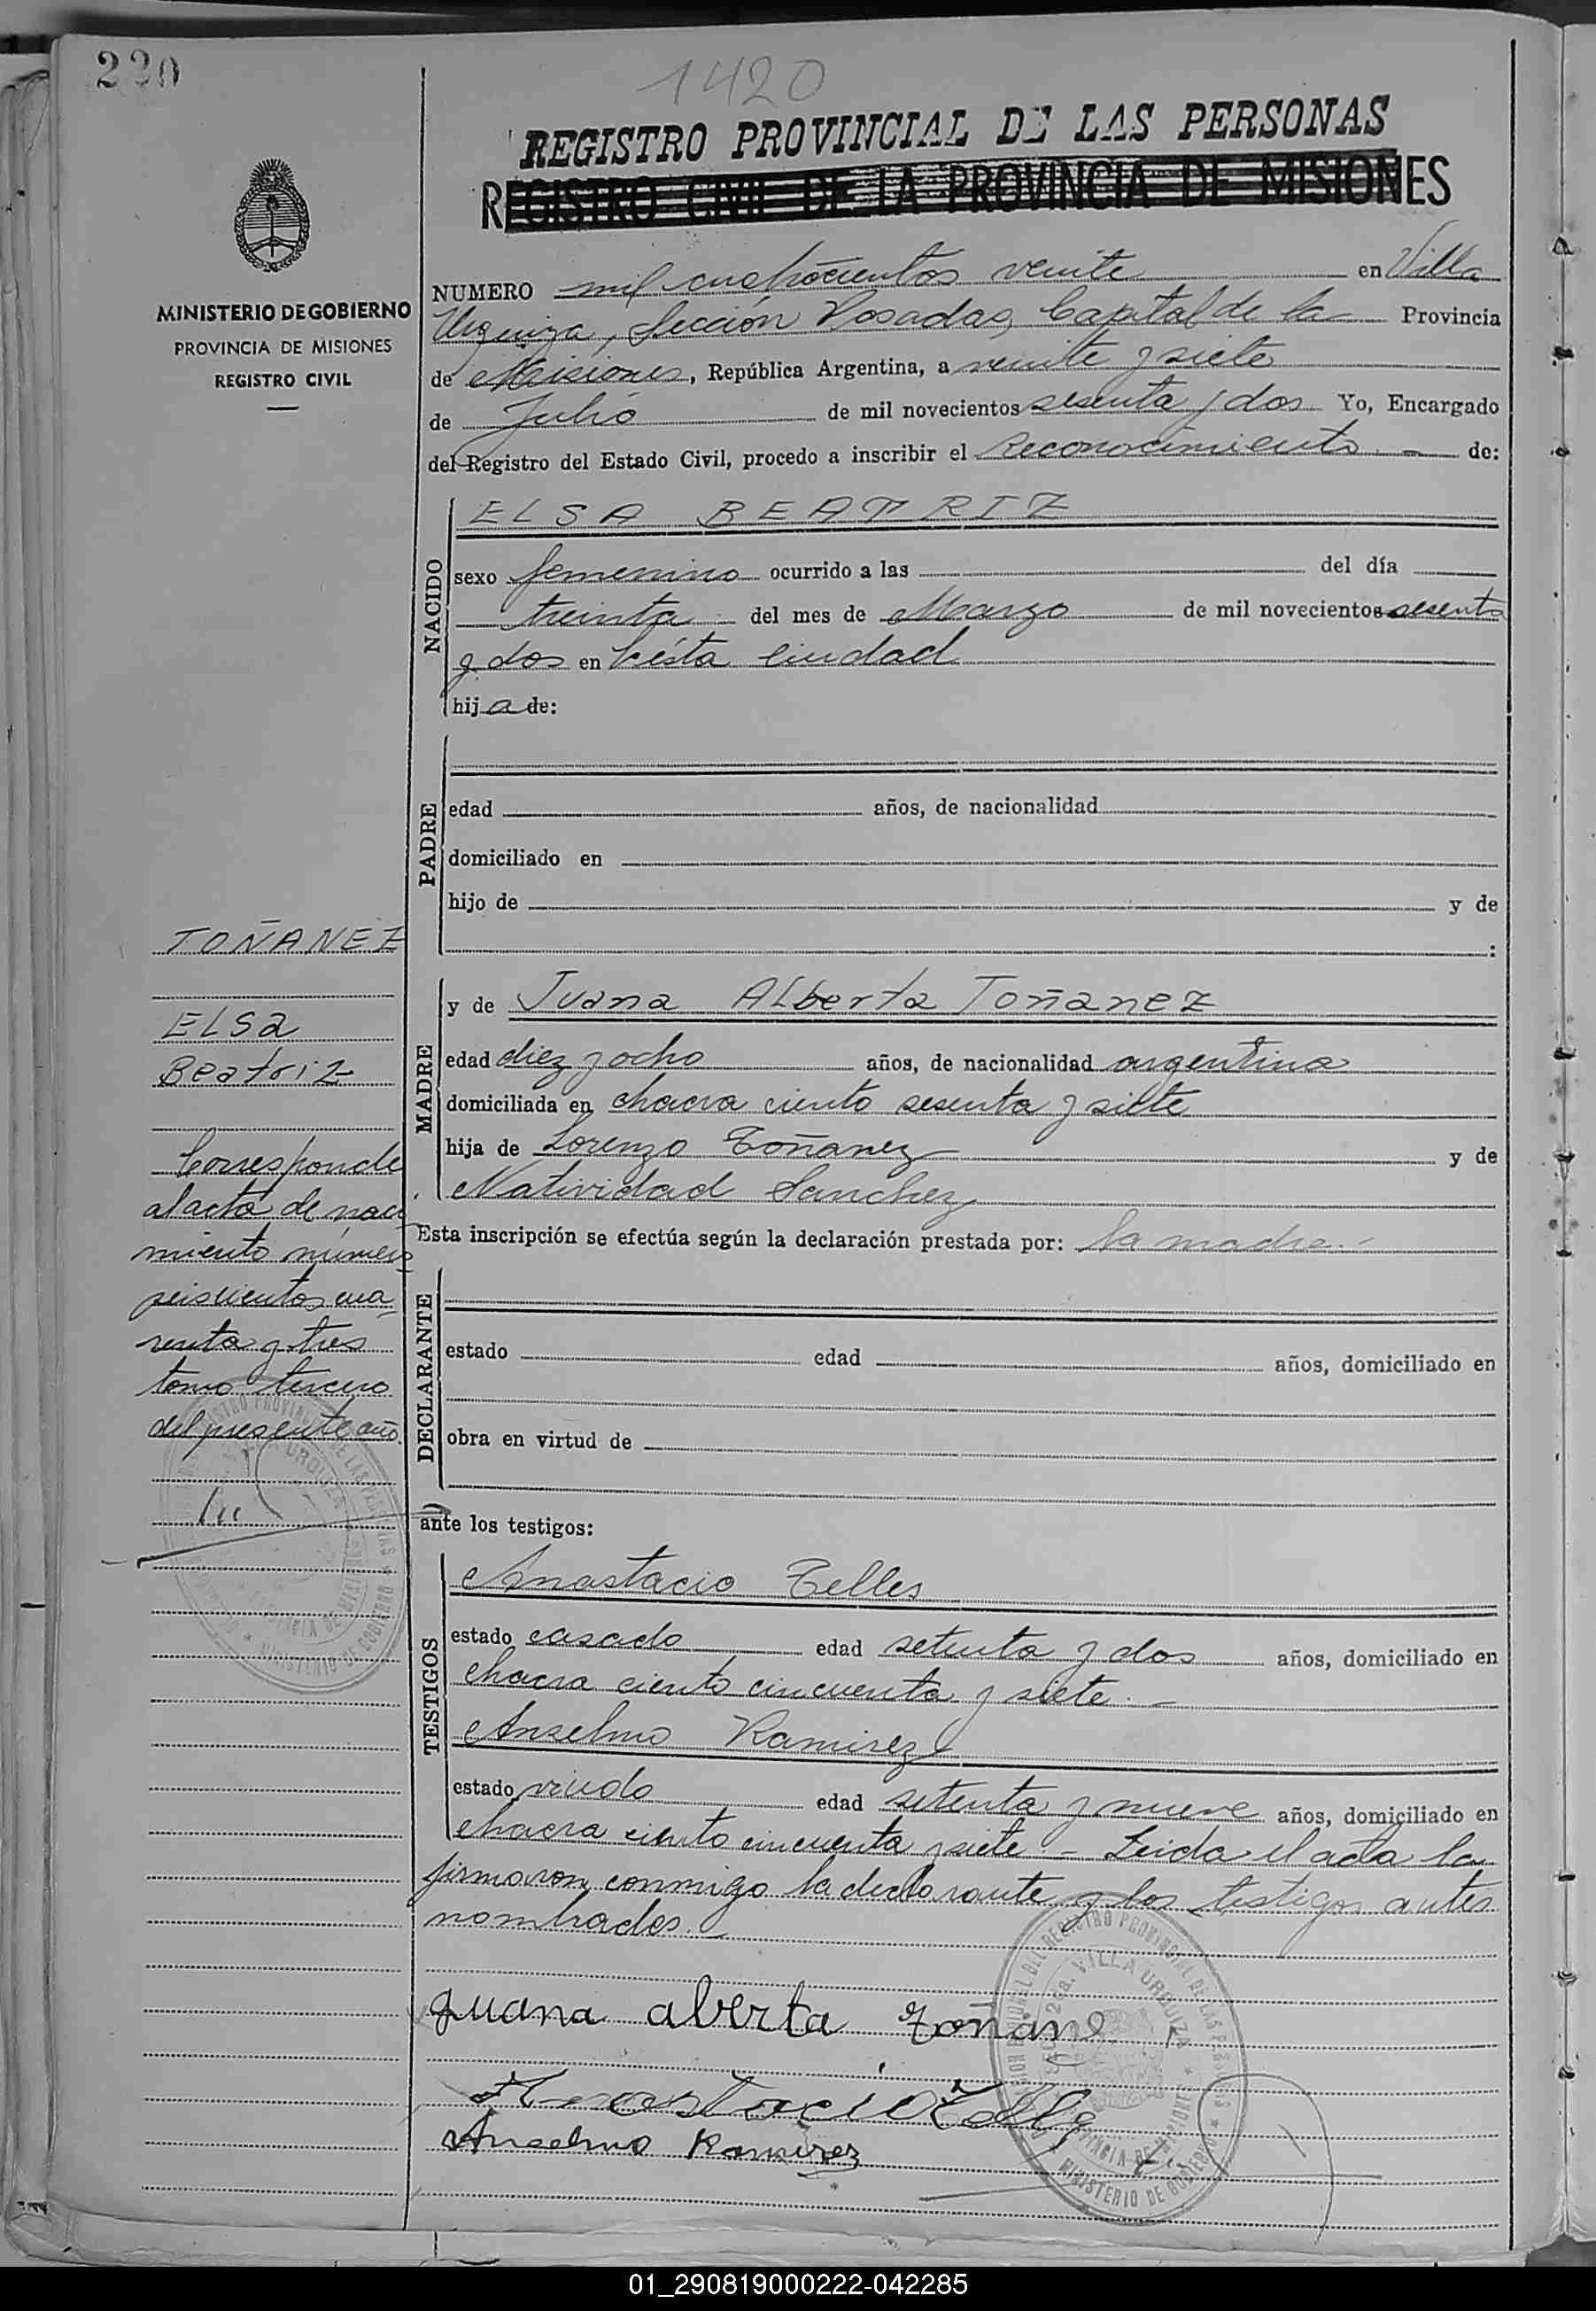 220
1420
REGISTRO PROVINCIAL DE LAS PERSONAS
REGISTRO CIVIL DE LA PROVINCIA DE MISIONES
MINISTERIO DE GOBIERNO
PROVINCIA DE MISIONES
REGISTRO CIVIL
NUMERO mil cuatrocientos veinte en Villa
Urquiza, Sección Posadas, Capital de la Provincia
de Misiones, República Argentina, a veinte y siete
de Julio de mil novecientos sesenta y dos Yo, Encargado
del Registro del Estado Civil, procedo a inscribir el Reconocimiento.- de:
NACIDO
ELSA BEATRIZ
sexo femenino ocurrido a las del día
treinta del mes de Marzo de mil novecientos sesenta
y dos en ésta ciudad
hij a de:
PADRE
edad años, de nacionalidad
domiciliado en
hijo de y de
:
TOÑANEZ
ELSa
Beatriz
Corresponde
al acta de naci
miento número
seiscientos cua
renta y tres
tomo tercero
del presente año.
MADRE
y de Juana ALberta Toñanez
edad diez y ocho años, de nacionalidad argentina
domiciliada en chacra ciento sesenta y siete
hija de Lorenzo Toñanez y de
Natividad Sanchez
Esta inscripción se efectúa según la declaración prestada por: la madre.-
DECLARANTE
estado edad años, domiciliado en
obra en virtud de
ante los testigos:
TESTIGOS
Anastacio Telles
estado casado edad setenta y dos años, domiciliado en
chacra ciento cincuenta y siete.-
Anselmo Ramirez
estado viudo edad setenta y nueve años, domiciliado en
chacra ciento cincuenta y siete.- Leida el acta la
firmaron conmigo la declarante y los testigos antes
nombrados.
juana alverta toñane
Anastacio Telle
Anselmo Ramirez
VILLA URQUIZA
MINISTERIO DE GOBIERNO
01_290819000222-042285